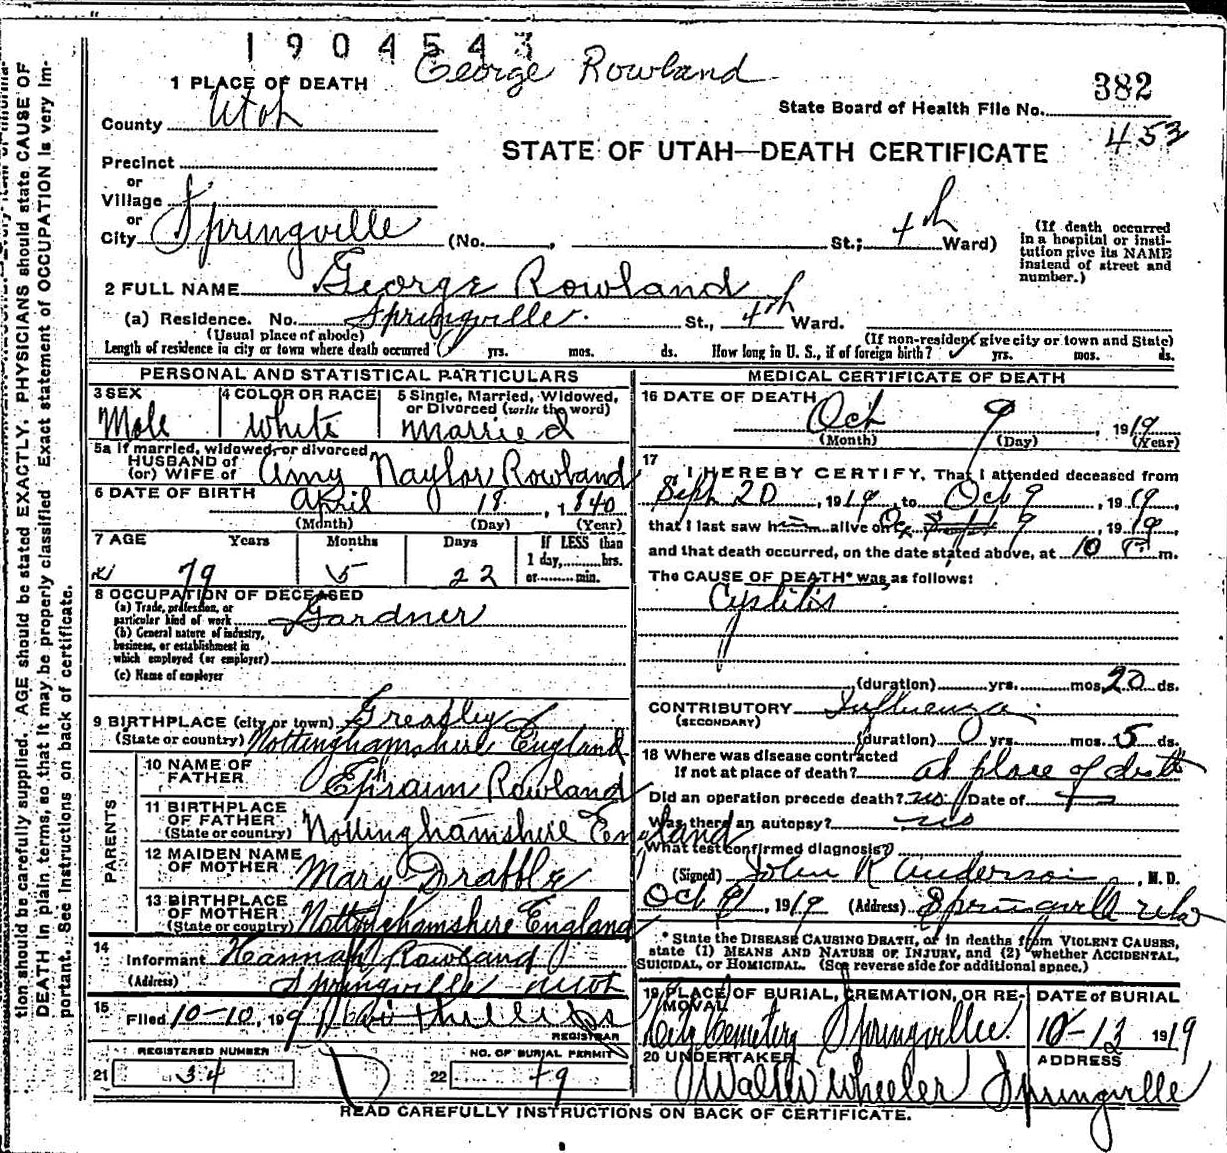 1904543
George Rowland
382
1 PLACE OF DEATH
State Board of Health File No.
453
County Utah
STATE OF UTAH—DEATH CERTIFICATE
Precinct
or
Village
or
City Springville (No. , St.; 4th Ward)
(If death occurred
in a hospital or insti-
tution give its NAME
instead of street and
number.)
2 FULL NAME George Rowland
(a) Residence. No. Springville. St., 4th Ward.
(Usual place of abode) (If non-resident give city or town and State)
Length of residence in city or town where death occurred yrs. mos. ds. How long in U. S., if of foreign birth? yrs. mos. ds.
PERSONAL AND STATISTICAL PARTICULARS
3 SEX 4 COLOR OR RACE 5 Single, Married, Widowed,
or Divorced (write the word)
Male white Married
5a If married, widowed, or divorced
HUSBAND of
(or) WIFE of Amy Naylor Rowland
6 DATE OF BIRTH April 18, 1840
(Month) (Day) (Year)
7 AGE Years Months Days If LESS than
1 day, hrs.
or min.
79 5 22
8 OCCUPATION OF DECEASED
(a) Trade, profession, or
particular kind of work Gardner
(b) General nature of industry,
business, or establishment in
which employed (or employer)
(c) Name of employer
9 BIRTHPLACE (city or town) Greasley
(State or country) Nottinghamshire England
PARENTS
10 NAME OF
FATHER Ephraim Rowland
11 BIRTHPLACE
OF FATHER
(State or country) Nottinghamshire England
12 MAIDEN NAME
OF MOTHER Mary Draffle
13 BIRTHPLACE
OF MOTHER
(State or country) Nottinghamshire England
14
Informant Hannah Rowland
(Address) Springville Utah
15
Filed 10-10, 1919
REGISTRAR
REGISTERED NUMBER
21 34
NO. OF BURIAL PERMIT
22 49
MEDICAL CERTIFICATE OF DEATH
16 DATE OF DEATH Oct 9, 1919
(Month) (Day) (Year)
17
I HEREBY CERTIFY, That I attended deceased from
Sept 20, 1919, to Oct 9, 1919,
that I last saw him alive on Oct 9, 1919,
and that death occurred, on the date stated above, at 10 P. m.
The CAUSE OF DEATH* was as follows:
Cystitis
(duration) yrs. mos. 20 ds.
CONTRIBUTORY Influenza
(SECONDARY)
(duration) yrs. mos. 5 ds.
18 Where was disease contracted
If not at place of death? at place of death
Did an operation precede death? no Date of
Was there an autopsy? no
What test confirmed diagnosis?
(Signed) John R Anderson, M. D.
Oct 9, 1919 (Address) Springville Utah
* State the DISEASE CAUSING DEATH, or in deaths from VIOLENT CAUSES,
state (1) MEANS AND NATURE OF INJURY, and (2) whether ACCIDENTAL,
SUICIDAL, OR HOMICIDAL. (See reverse side for additional space.)
19 PLACE OF BURIAL, CREMATION, OR RE-
MOVAL
City Cemetery Springville
DATE OF BURIAL
10-13 1919
20 UNDERTAKER ADDRESS
Walter Wheeler Springville
READ CAREFULLY INSTRUCTIONS ON BACK OF CERTIFICATE.
tion should be carefully supplied. AGE should be stated EXACTLY. PHYSICIANS should state CAUSE OF
DEATH in plain terms, so that it may be properly classified. Exact statement of OCCUPATION is very im-
portant. See instructions on back of certificate.